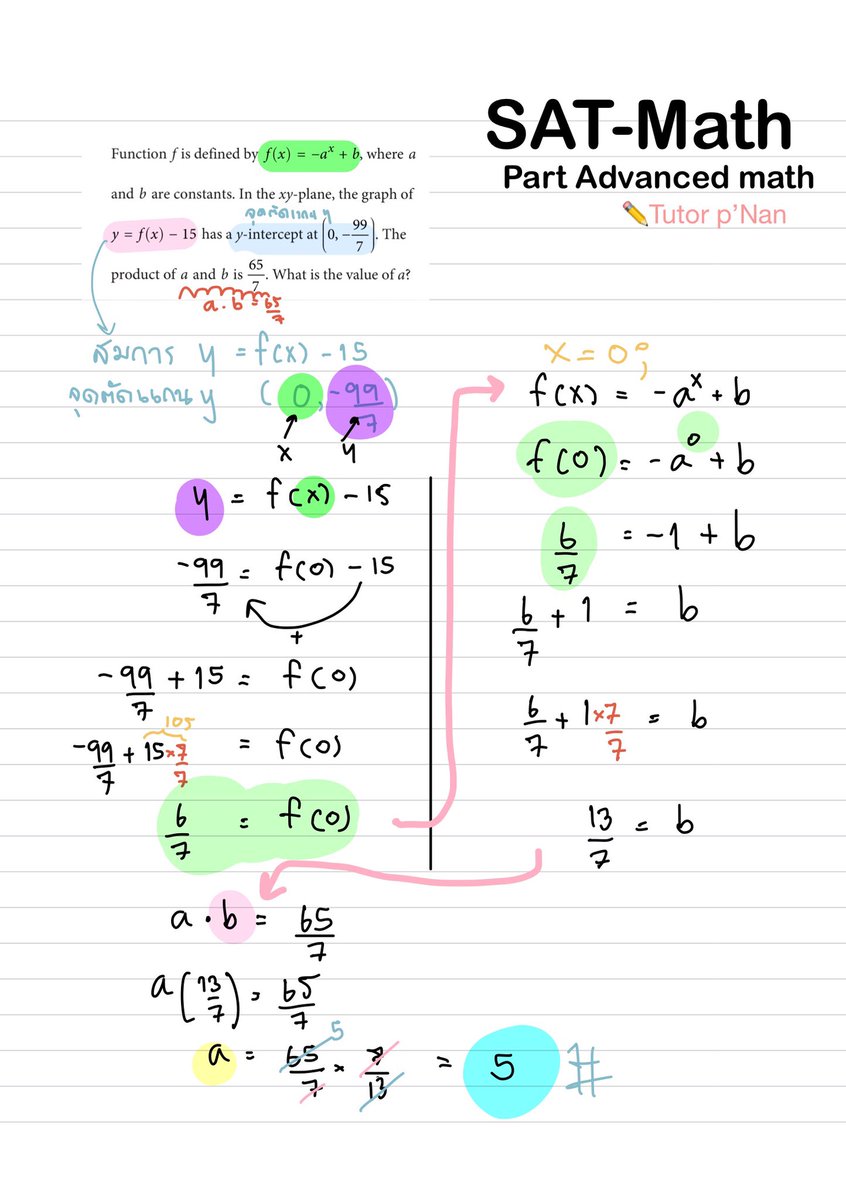 SAT-Math
Part Advanced math
✏️Tutor p'Nan
Function f is defined by f(x) = −aˣ + b, where a
and b are constants. In the xy-plane, the graph of
จุดตัดแกน y
y = f(x) − 15 has a y-intercept at (0, −99/7). The
product of a and b is 65/7. What is the value of a?
a·b = 65/7
สมการ y = f(x) - 15
จุดตัดแกน y (0, -99/7)
x y
y = f(x) - 15
-99/7 = f(0) - 15
+
-99/7 + 15 = f(0)
105
-99/7 + 15×7/7 = f(0)
6/7 = f(0)
x = 0;
f(x) = -aˣ + b
f(0) = -a⁰ + b
6/7 = -1 + b
6/7 + 1 = b
6/7 + 1×7/7 = b
13/7 = b
a · b = 65/7
a(13/7) = 65/7
5
a = 65/7 × 7/13 = 5 #